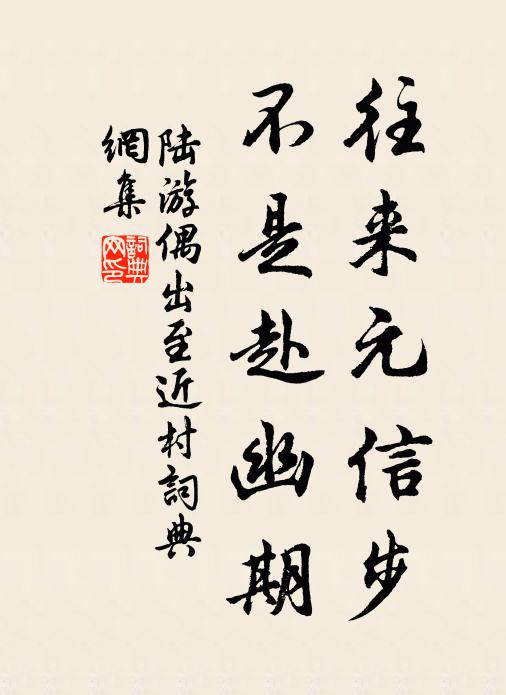 往来元信步
不是赴幽期
陆游偶出至近村詞典
網集
詞典
网印